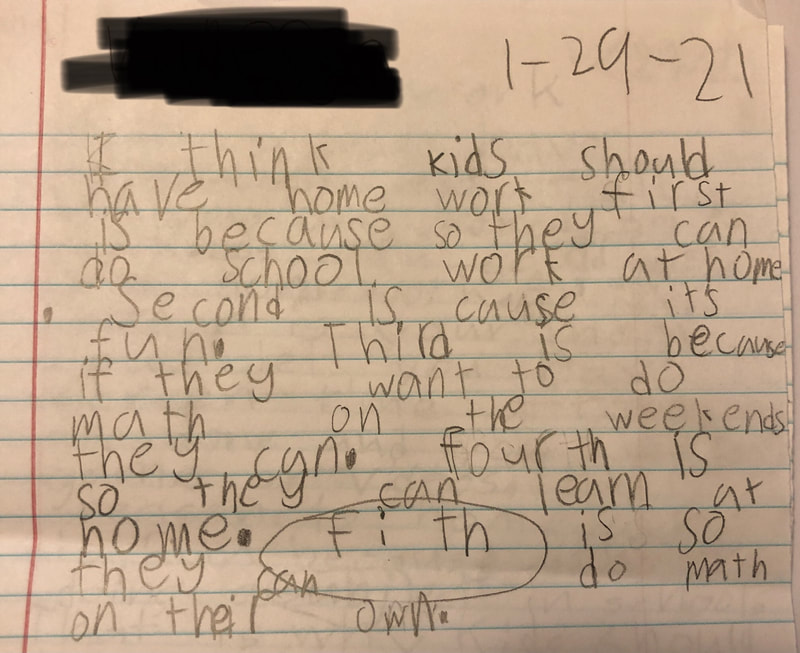 1-29-21
I think kids should
have home work first
is because so they can
do school work at home
. Second is cause its
fun. Third is because
if they want to do
math on the weekends
they can. fourth is
so they can learn at
home. fi th is so
they can do math
on their own.